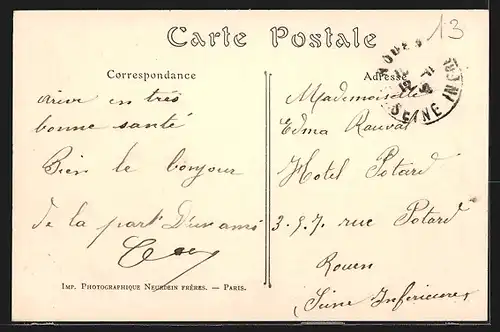 Carte Postale
13
Correspondance
Adresse
arrivé en très
bonne santé
Bien le bonjour
de la part D'un ami
Mademoiselle
Edma Rauval
Hotel Potard
3.5.7. rue Potard
Rouen
Seine Inférieure
SEINE INFRE
IMP. PHOTOGRAPHIQUE NEURDEIN FRÈRES. — PARIS.